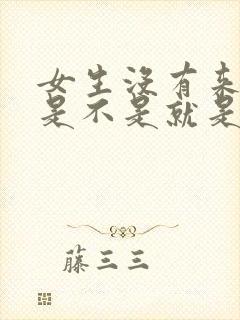 女生没有来
是不是就是
藤三三